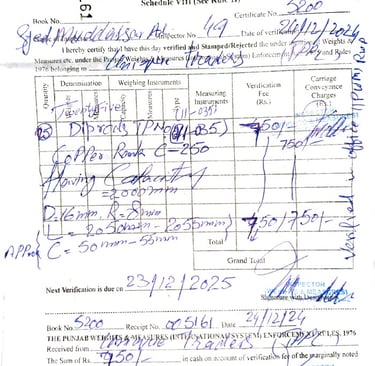 Schedule VIII (See Rule 17)
161
Book No. Certificate No. 5200
Syed Muddassar Ali Inspector 49 Date of verification 24/12/2024
I hereby certify that I have this day verified and Stamped/Rejected the under Weights &
Measures etc. under the Punjab Weights Enforcement and Rules
1976 belonging to Traders
Quantity Denomination Weighing Instruments Measuring Instruments Verification Fee (Rs.) Carriage Conveyance Charges
Weights Measures Type
Twenty five 11-035
(25) Diprods TPNo (11-035) 750/-
Copper Rank C=250 750/-
Having Capacity
=2000mm
D=16mm, R=8mm
L = 2050mm - 2055mm 750/750/-
Approx C = 50mm-55mm
Total
Grand Total
verified in office
Next Verification is due on 23/12/2025
INSPECTOR
Signature with Desig
Book No. 5200 Receipt No. 005161 Date 24/12/24
THE PUNJAB WEIGHTS & MEASURES (INTERNATIONAL SYSTEM) ENFORCEMENT RULES, 1976
Received from Traders
The Sum of Rs. 750/- in cash on account of verification fee of the marginally noted